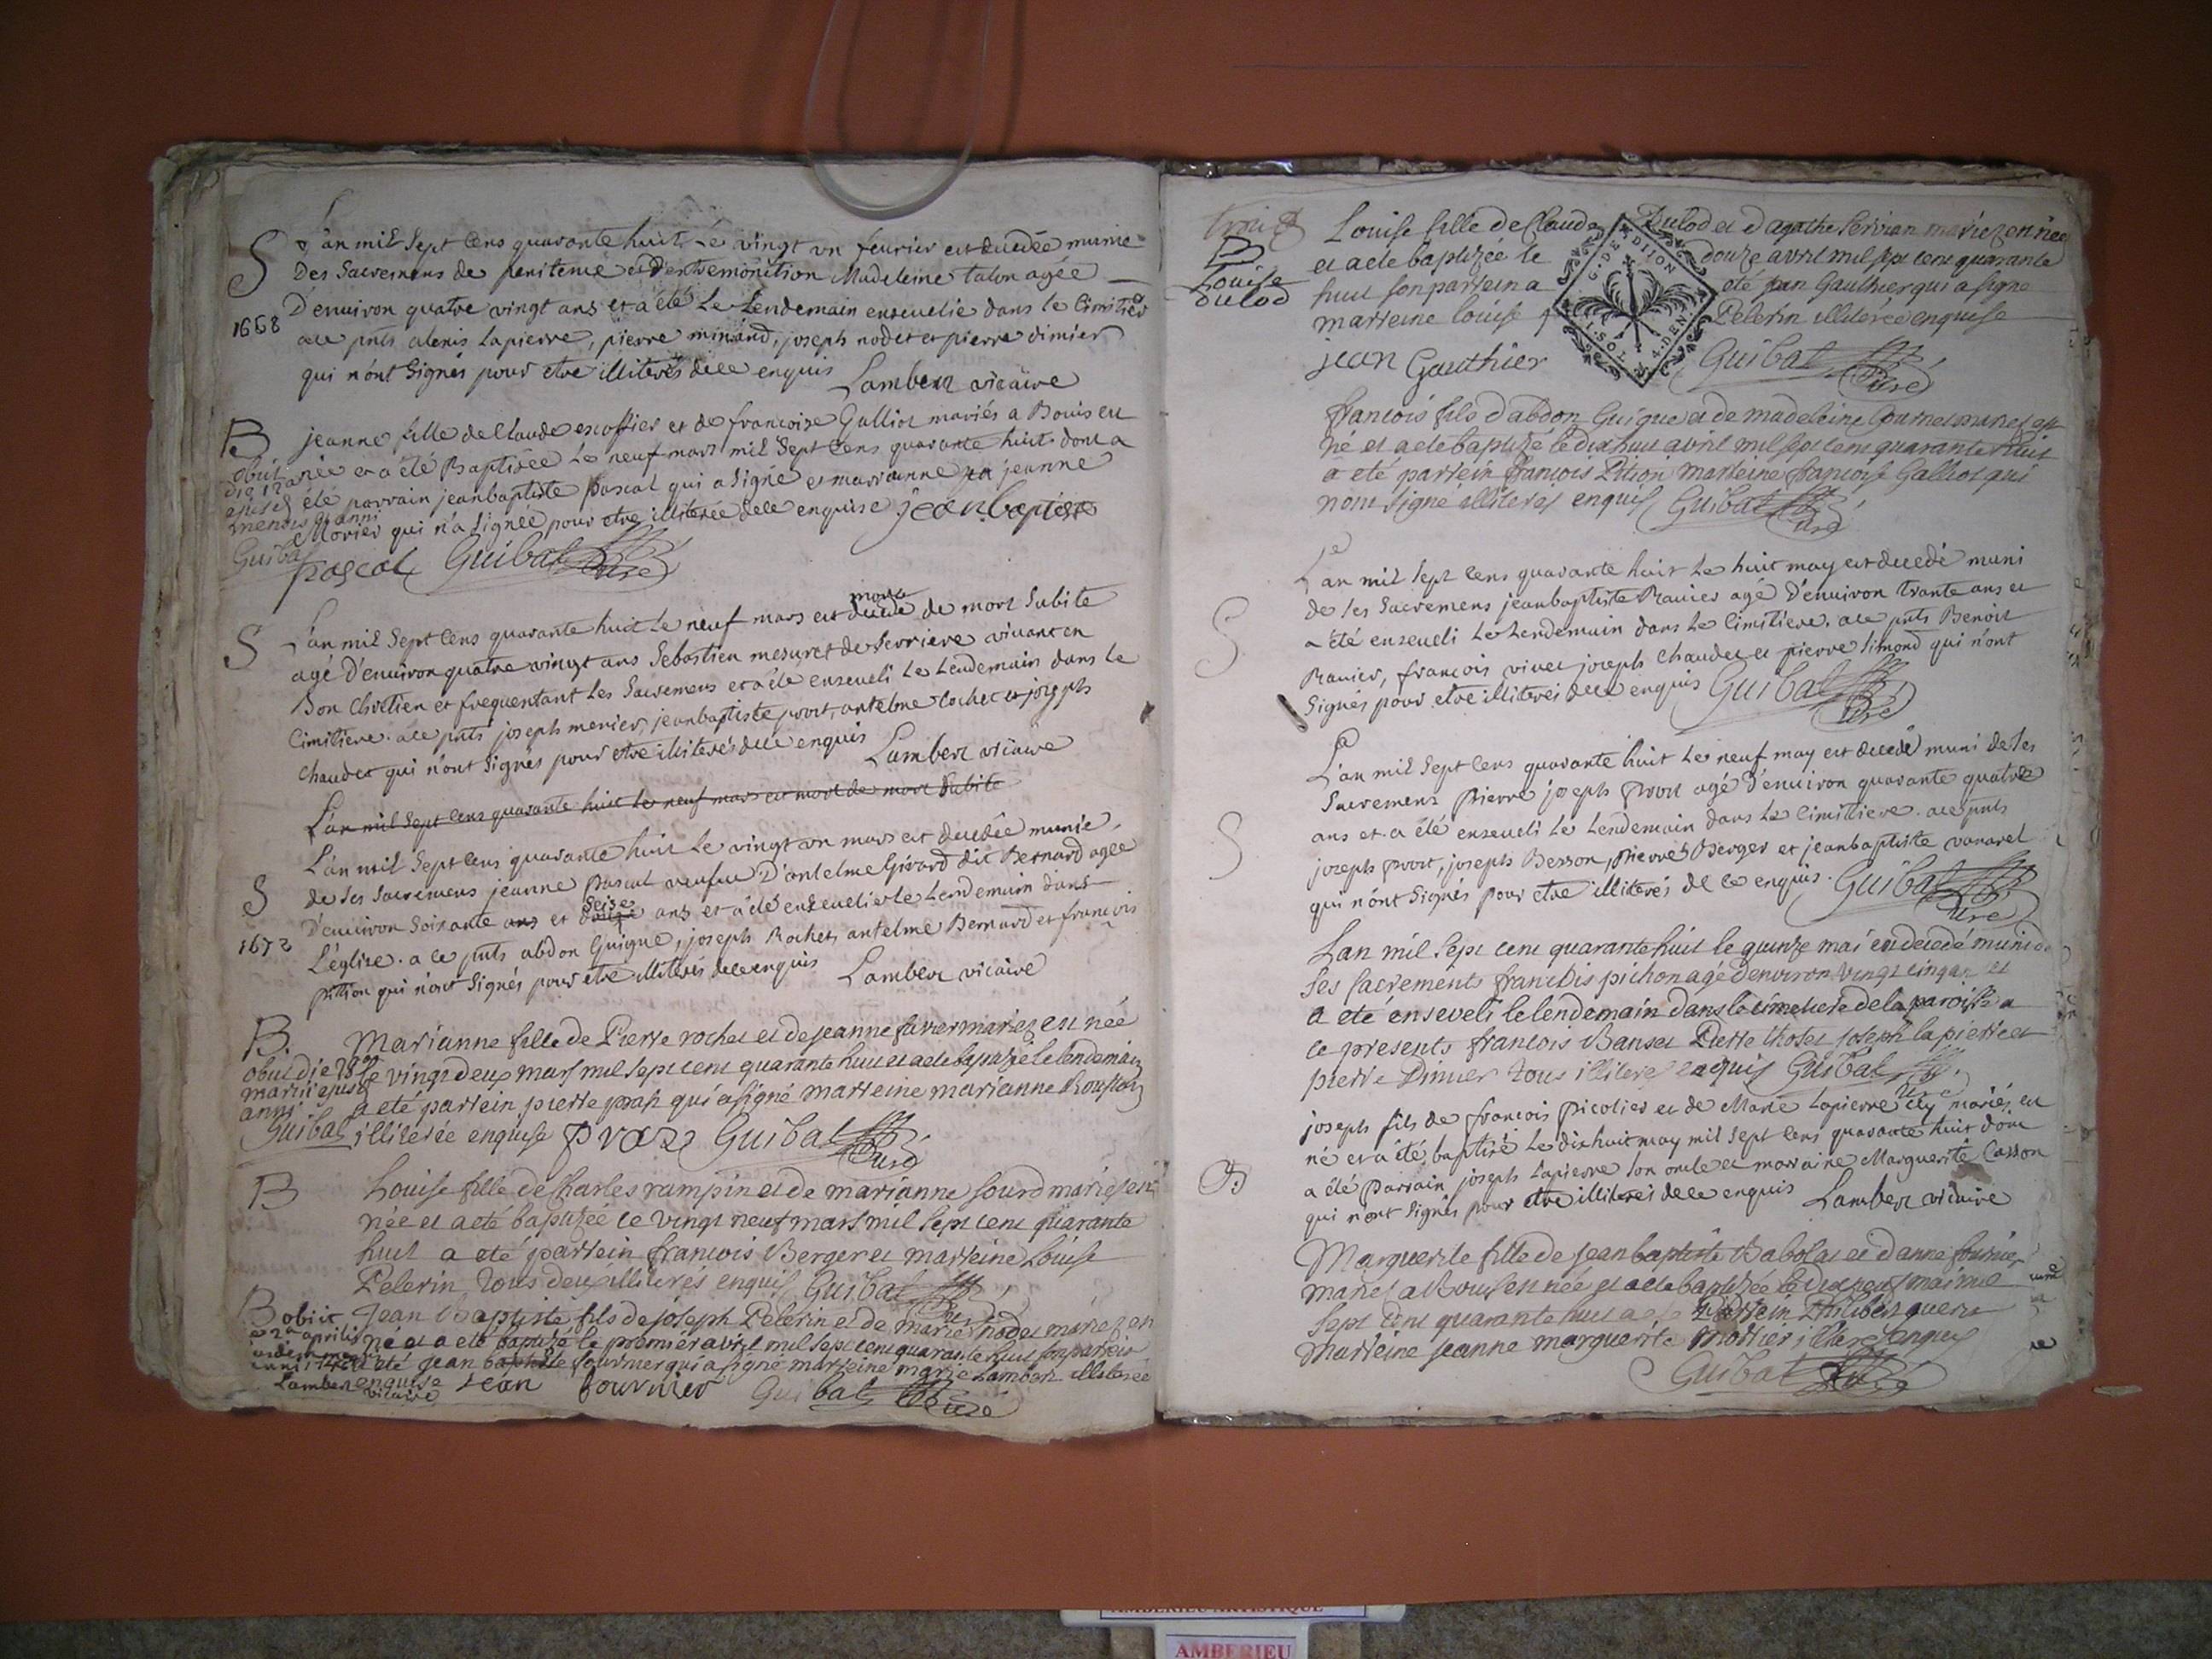 S
L'an mil sept cens quarante huit le vingt un feurier est decedée munie
Des Sacremens de penitence et D'extremonition Madeleine talon agée
D'enuiron quatre vingt ans et a été le Lendemain enseuelie dans le Cimitier
1668
a ce pnts alexis lapierre, pierre minand, joseph nodet et pierre dimier
qui n'ont Signés pour etre illiterés de ce enquis Lambert vicaire
B
jeanne fille de Claude escoffier et de francoise Galliot mariés a Bouis est
obiit
née et a été Baptisée le neuf mars mil Sept Cens quarante huit dont a
die 12a
été parrain jeanbaptiste pascal qui a signé et marrainne jeanne
ejusd
mensis et anni
Morier qui n'a Signée pour etre illiterée de ce enquise jean baptiste
Guibal
pascal Guibal Curé
S
L'an mil Sept Cens quarante huit le neuf mars est decede mort de mort Subite
agé D'enuiron quatre vingt ans Sebastien mesuret de Serriere viuant en
Bon Chretien et frequentant les Sacremens et a été enseueli le Lendemain dans le
Cimitiere. a ce pnts joseph merier, jeanbaptiste prost, antelme Cochet et joseph
Chaudet qui n'ont Signés pour etre illiterés de ce enquis Lambert vicaire
L'an mil Sept Cens quarante huit le neuf mars est mort de mort Subite
L'an mil Sept Cens quarante huit le vingt un mars est decedée munie
S
de ses Sacremens jeanne pascal veufue D'antelme Girard dit Bernard agée
D'enuiron Soixante ans et seize ans et a été enseuelie le Lendemain dans
1672
L'eglise. a ce pnts abdon Guigue, joseph Rochet, antelme Bernard et francois
pition qui n'ont Signés pour etre illiterés de ce enquis Lambert vicaire
B.
Marianne fille de Pierre rochet et de jeanne favier mariez est née
obiit die 28a
le vingt deux mars mil sept cent quarante huit et a ete baptizée le lendemain
martii ejusd
anni
a eté parrein pierre praz qui a signé marreine marianne Rousson
Guibal
illiterée enquise praz Guibal Curé
B
Louise fille de Charles rampin et de marianne sourd mariés est
née et a eté baptizée le vingt neuf mars mil sept cent quarante
huit a eté parrein francois Berger et marreine Louise
Pelerin tous deux illiterés enquis Guibal Curé
B obiit
Jean Baptiste fils de joseph Pelerin et de marie nodet mariez est
2a aprilis
né et a eté baptizé le premier avril mil sept cent quarante huit son parrein
a eté jean baptiste fournier qui a signé marreine marie Lambert illiterée
Lambert vicaire
enquise jean fournier Guibal Curé
B
Louise
dulod
Louise fille de Claude Dulod et d agathe Servian mariez est née
et a eté baptizée le douze avril mil sept cent quarante
huit son parrein a eté jean Gauthier qui a signé
marreine louise Pelerin illiterée enquise
G. DE DIJON
1. SOL. 4. DEN.
jean Gauthier Guibal Curé
francois fils d'abdon Guigue et de madeleine mariez est
né et a eté baptizé le dix huit avril mil sept cent quarante huit
a eté parrein francois Pition marreine francoise Galliot qui
n'ont signé illiterés enquis Guibal Curé
L'an mil sept cens quarante huit le huit may est decedé muni
S
de ses Sacremens jeanbaptiste Rauier agé D'enuiron trante ans et
a été enseueli le Lendemain dans le Cimitiere. a ce pnts Benoit
Rauier, francois viuet, joseph Chaudet et pierre Simond qui n'ont
Signés pour etre illiterés de ce enquis Guibal Curé
L'an mil Sept Cens quarante huit le neuf may est decedé muni de ses
S
Sacremens pierre joseph prost agé D'enuiron quarante quatre
ans et a été enseueli le Lendemain dans le Cimitiere. a ce pnts
joseph prost, joseph Besson, pierre Berger et jeanbaptiste vanarel
qui n'ont Signés pour etre illiterés de ce enquis. Guibal Curé
L'an mil sept cent quarante huit le quinze mai est decedé muni de
ses sacrements francois pichon agé d'environ vingt cinq ans et
a eté enseveli le lendemain dans le cimetiere de la paroisse a
ce presents francois Banset Pierre thoset joseph lapierre et
pierre Dimier tous illiterés enquis Guibal Curé
joseph fils de francois picolier et de Marie Lapierre mariés est
né et a été baptisé le dixhuit may mil sept Cens quarante huit dont
B
a été parrain joseph Lapierre son oncle et marraine Marguerite Casson
qui n'ont Signés pour etre illiterés de ce enquis Lambert vicaire
Marguerite fille de jean baptiste Babolat et d anne fournier
mariés a Bouis est née et a eté baptizée le dix neuf mai mil
sept cent quarante huit a eté Parrein Philibert guerre
marreine jeanne marguerite mortier illiterés enquis
Guibal Curé
AMBERIEU ARTISTIQUE
AMBERIEU